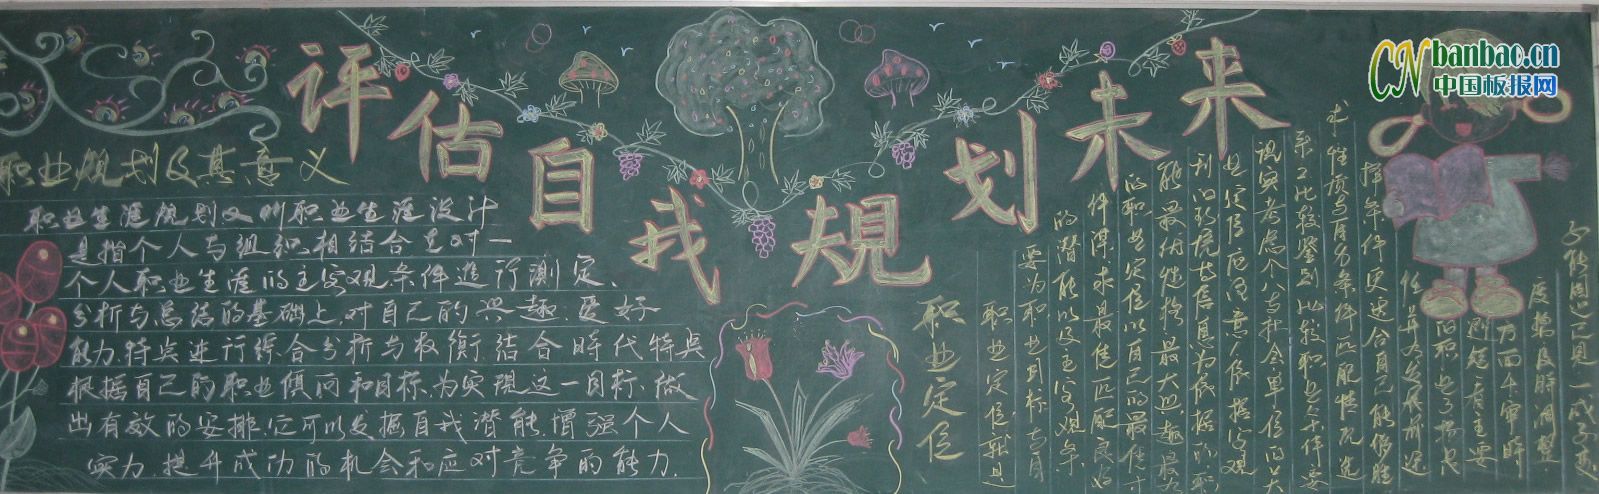 评估自我规划未来
CN banbao.cn
中国板报网
职业规划及其意义
职业生涯规划又叫职业生涯设计
是指个人与组织相结合在对一
个人职业生涯的主客观条件进行测定、
分析与总结的基础上,对自己的兴趣、爱好
能力、特点进行综合分析与权衡,结合时代特点
根据自己的职业倾向和目标,为实现这一目标,做
出有效的安排,它可以发掘自我潜能,增强个人
实力,提升成功的机会和应对竞争的能力.
职业定位
职业定位就是
要为职业目标与自
的潜能以及主客观条
件谋求最佳匹配良好
的职业定位以自己的最佳才
能最优性格最大兴趣最有
利的环境等信息为依据的职
业定位应注意依据客观
现实考虑个人与社会单位的关
系比较鉴别比较职业条件要
求性质与自身条件匹配情况选
择条件更适合自己能够胜
任并有发展前途
的职业了扬长
避短看主要
方面审时
度势及时调整